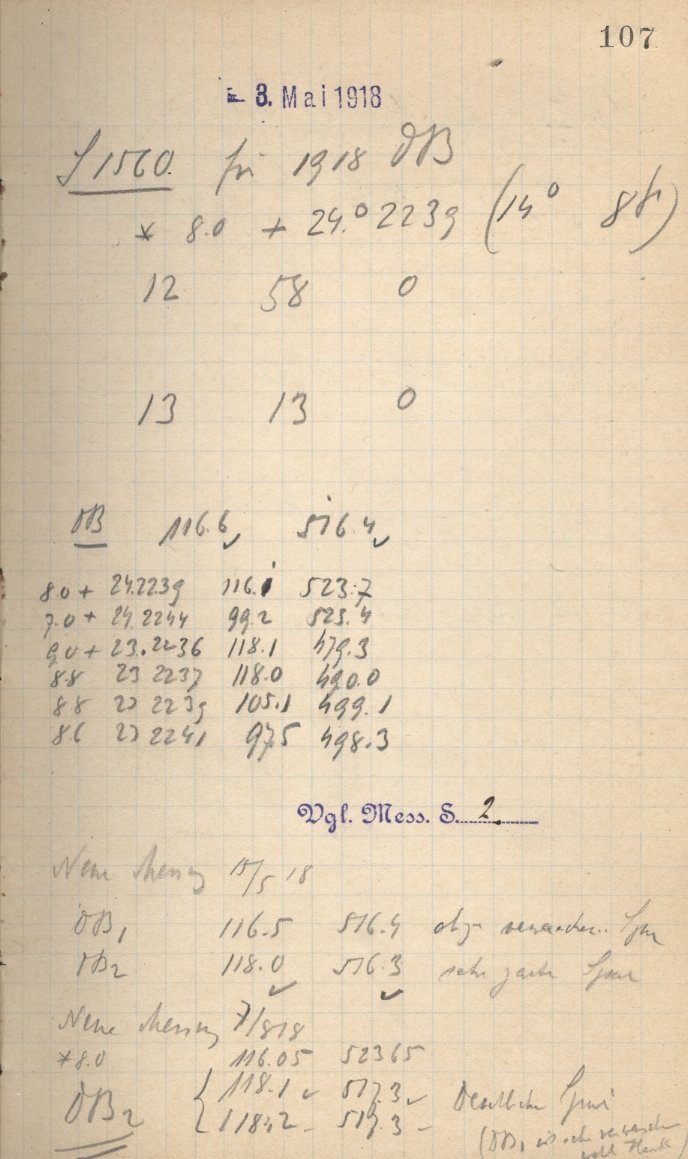 107
- 3. Mai 1918
J 1560. für 1918 DB
* 8.0 + 24.° 2239 (14° 8f)
12 58 0
13 13 0
DB 116.6 516.4
8.0 + 24.2239 116.1 523.7
7.0 + 24.2244 99.2 523.4
9.0 + 23.2236 118.1 479.3
8.8 23 2237 118.0 490.0
88 23 2239 105.1 499.1
86 23 2241 97.5 498.3
Vgl. Mess. S. 2.
Neue Messung 15/5 18
DB1 116.5 516.4 Spur
DB2 118.0 516.3 sehr zarte Spur
Neue Messung 7/8 18
*8.0 116.05 52365
DB2 { 118.1 517.3 Deutliche Spur
{ 11842 - 517.3 -
(DB1 ist sehr verwaschen